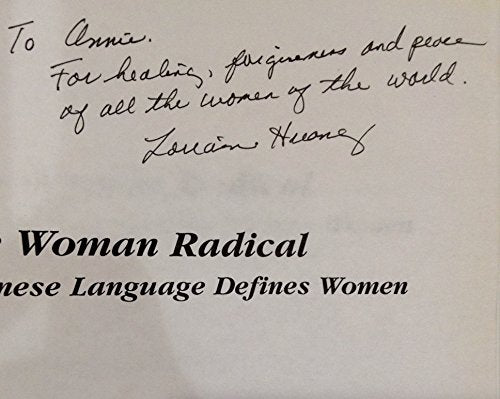 To Annie.
For healing, forgiveness and peace
of all the women of the world.
Lorraine Huang
Woman Radical
nese Language Defines Women